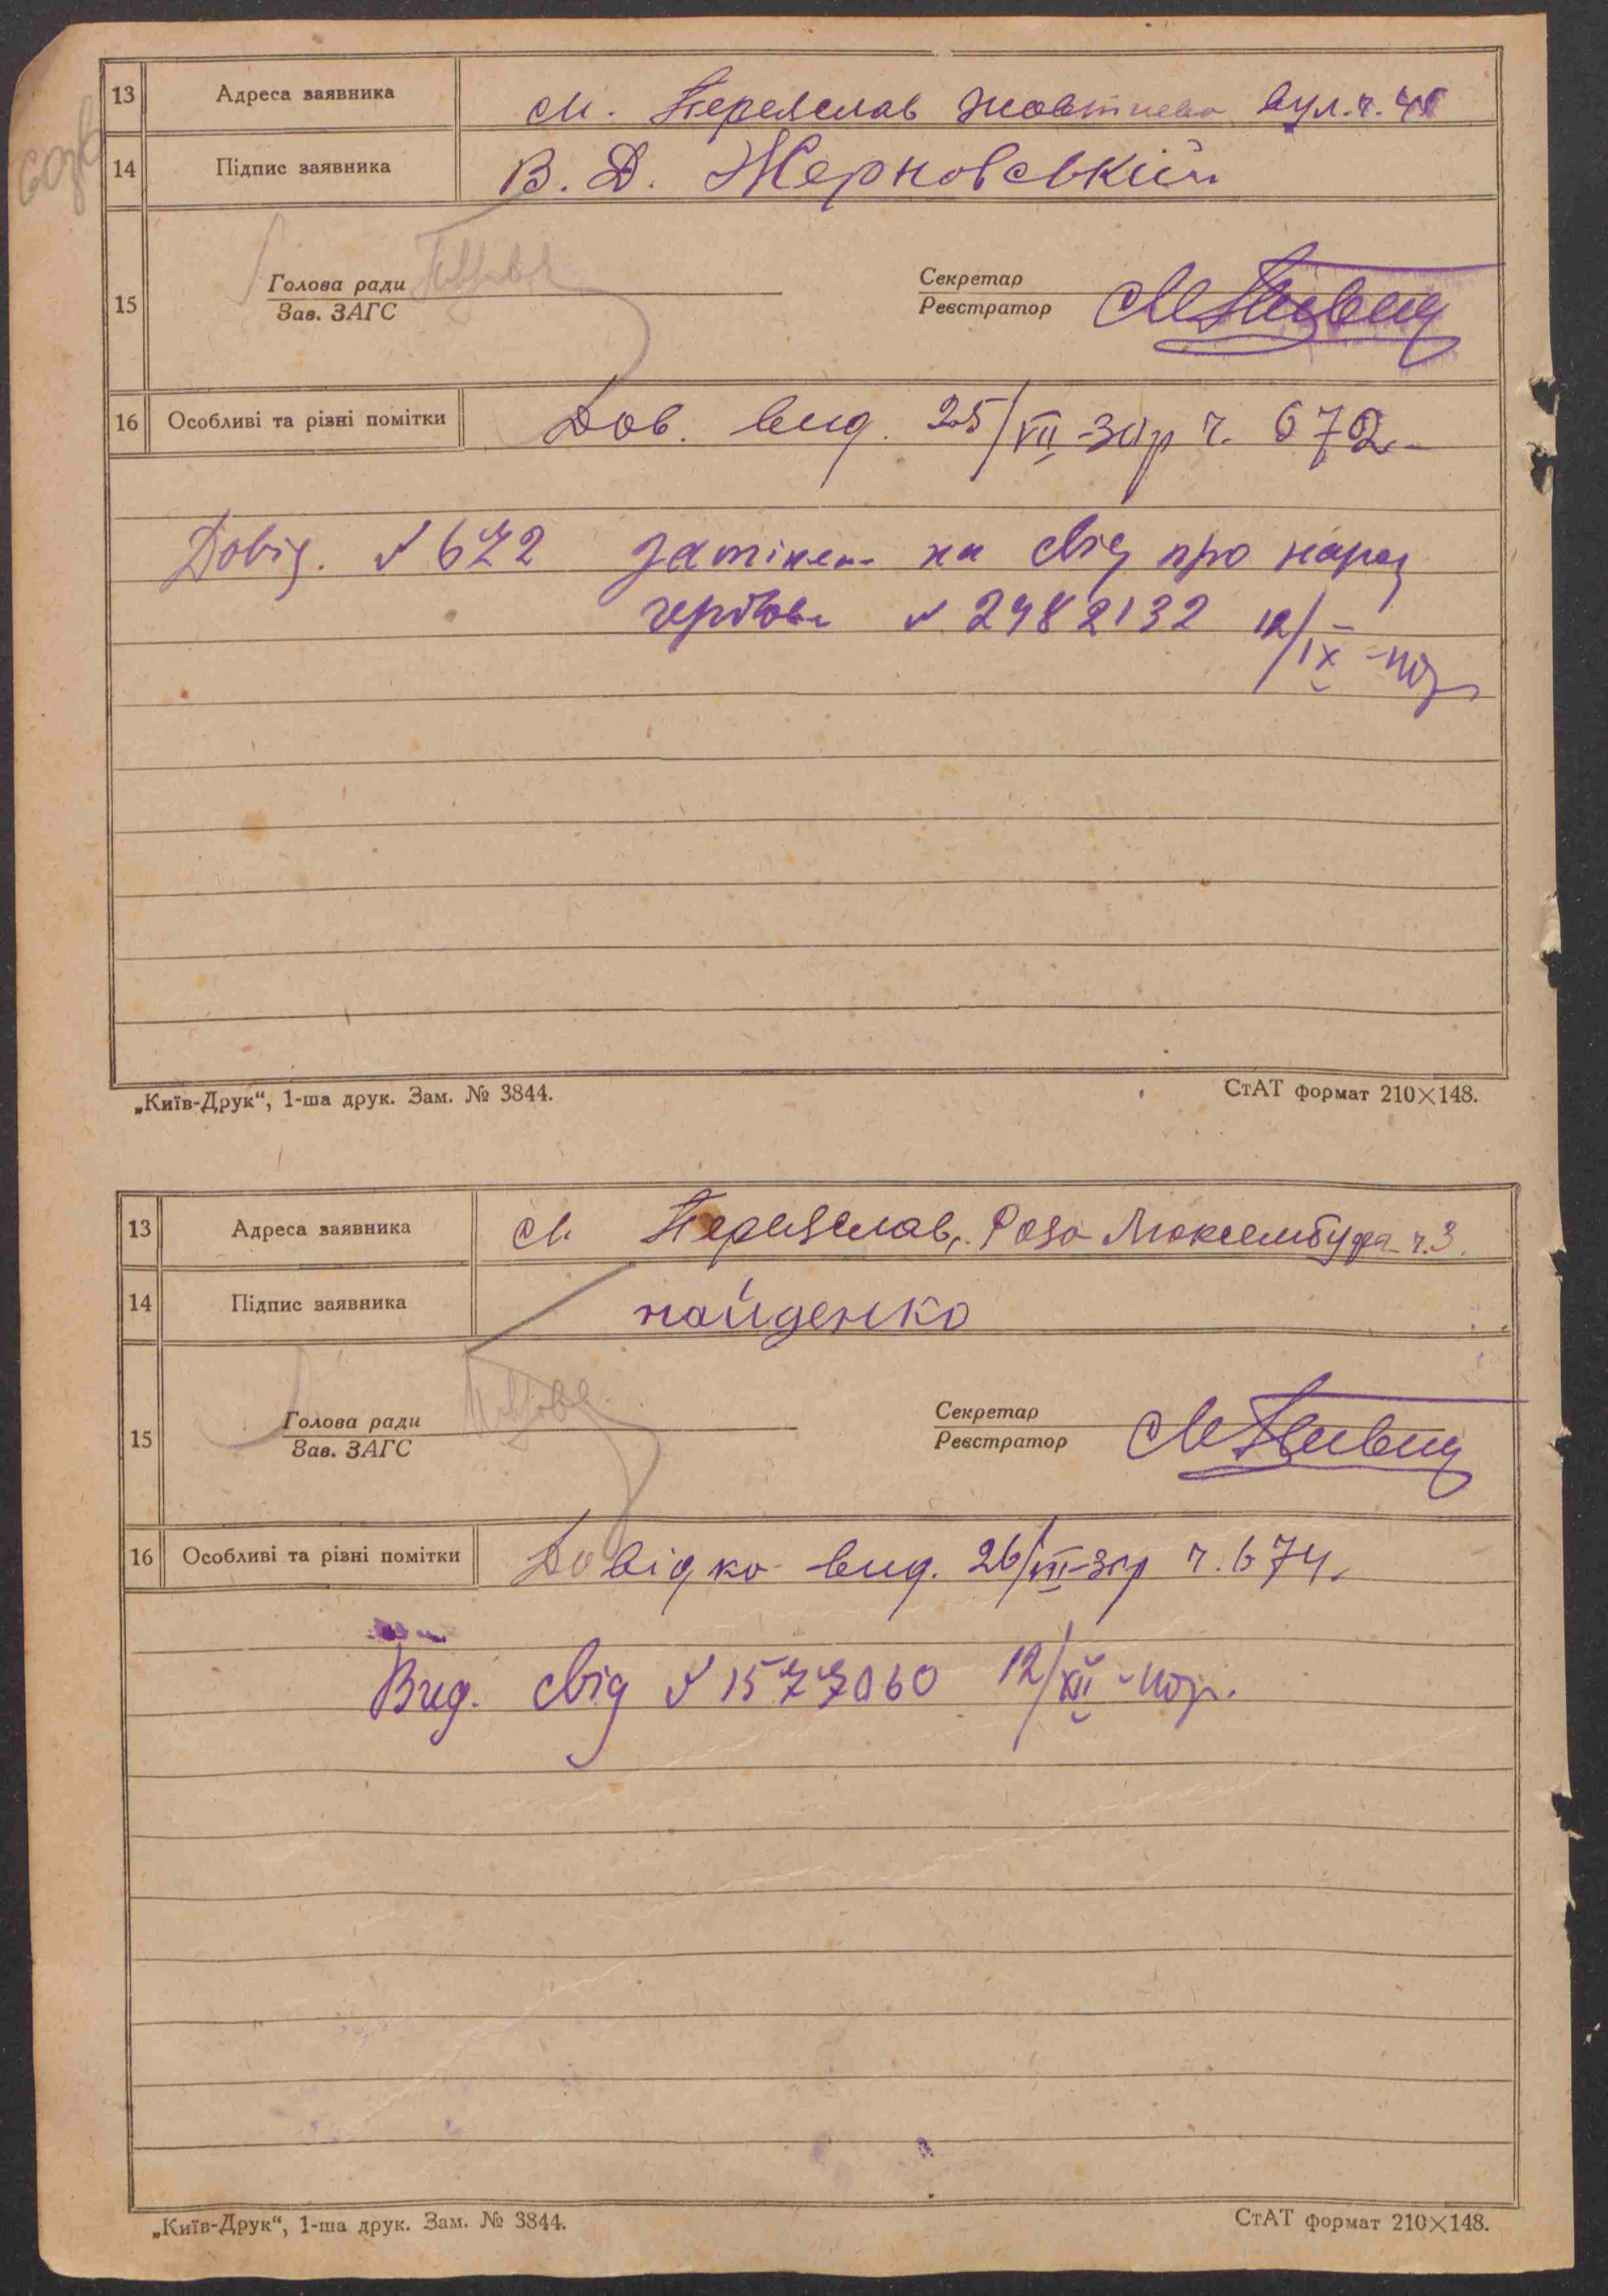 13 Адреса заявника м. Переяслав Жовтнева вул. ч. 40
14 Підпис заявника В. Д. Жерновський
15 Голова ради Секретар
Зав. ЗАГС Реєстратор
16 Особливі та різні помітки Дов. вид. 25/VII-30р ч. 672
Довід. № 672 замінена на свід про народ
гербове № 2982132 12/IX-40р
„Київ-Друк“, 1-ша друк. Зам. № 3844. СтАТ формат 210×148.
13 Адреса заявника м. Переяслав, Роза Люксембург ч. 3.
14 Підпис заявника найденко
15 Голова ради Секретар
Зав. ЗАГС Реєстратор
16 Особливі та різні помітки Довідка вид. 26/VII-30р ч. 674.
Вид. свід № 1577060 12/XII-40р.
„Київ-Друк“, 1-ша друк. Зам. № 3844. СтАТ формат 210×148.